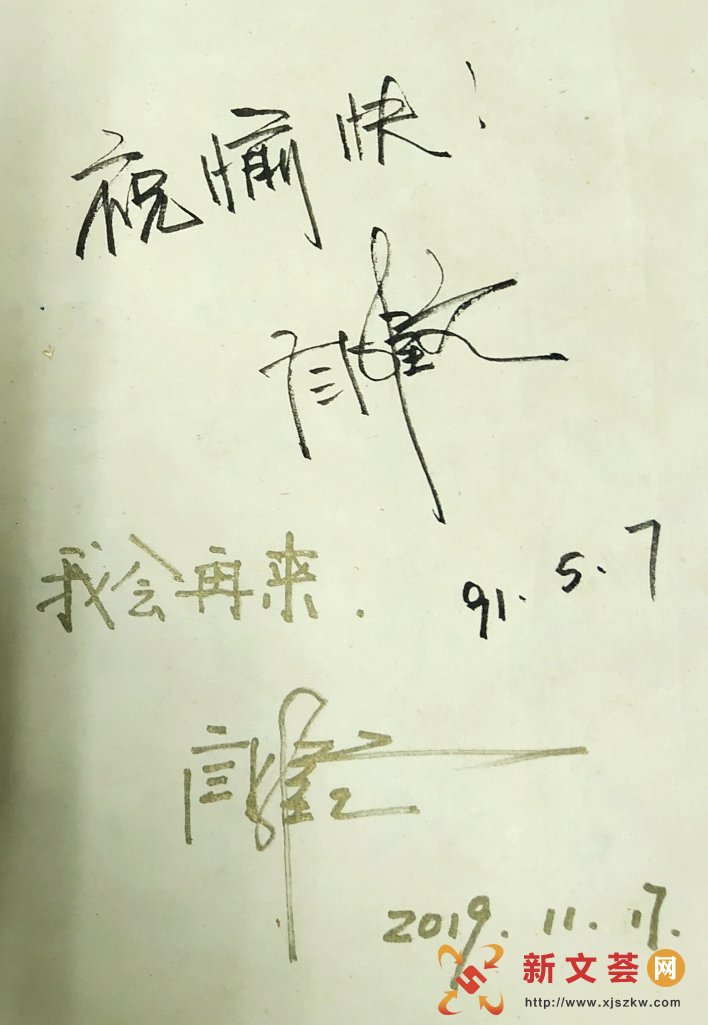 祝愉快！
91.5.7
我会再来.
2019.11.17.
新文荟网
http://www.xjszkw.com